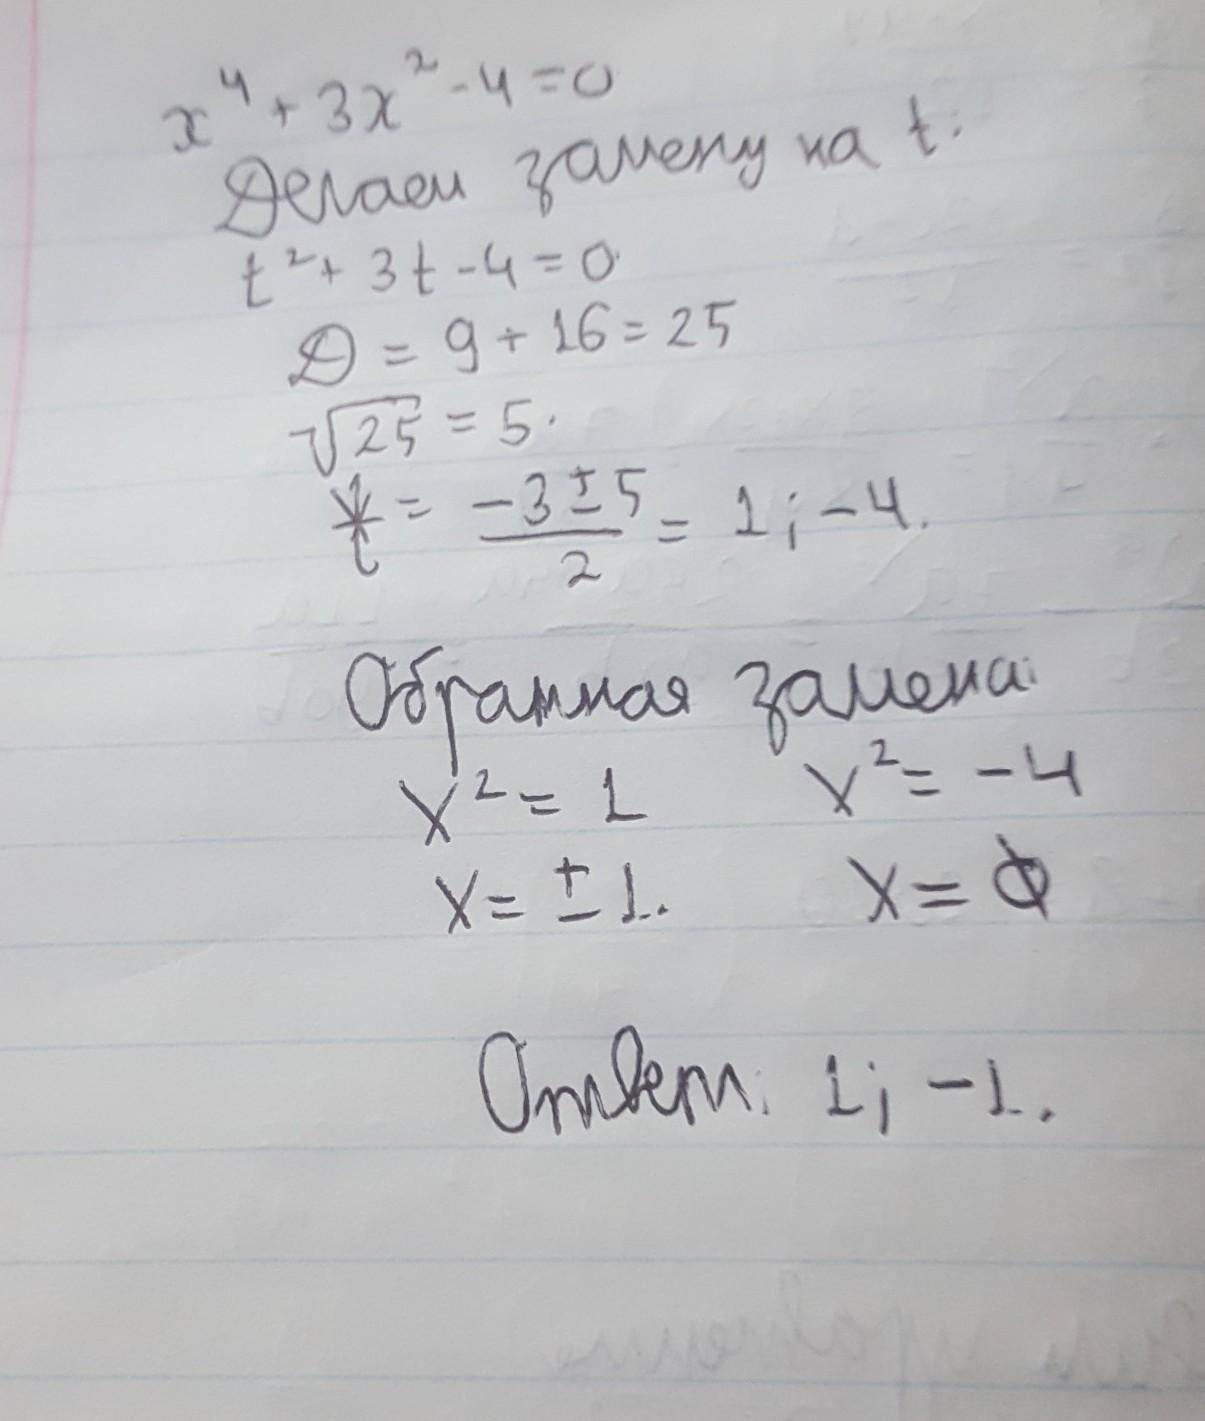 x⁴ + 3x² - 4 = 0
Делаем замену на t.
t² + 3t - 4 = 0.
D = 9 + 16 = 25
√25 = 5.
t = (-3 ± 5)/2 = 1; -4.
Обратная замена:
x² = 1 x² = -4
x = ± 1. x = ∅
Ответ: 1; -1.